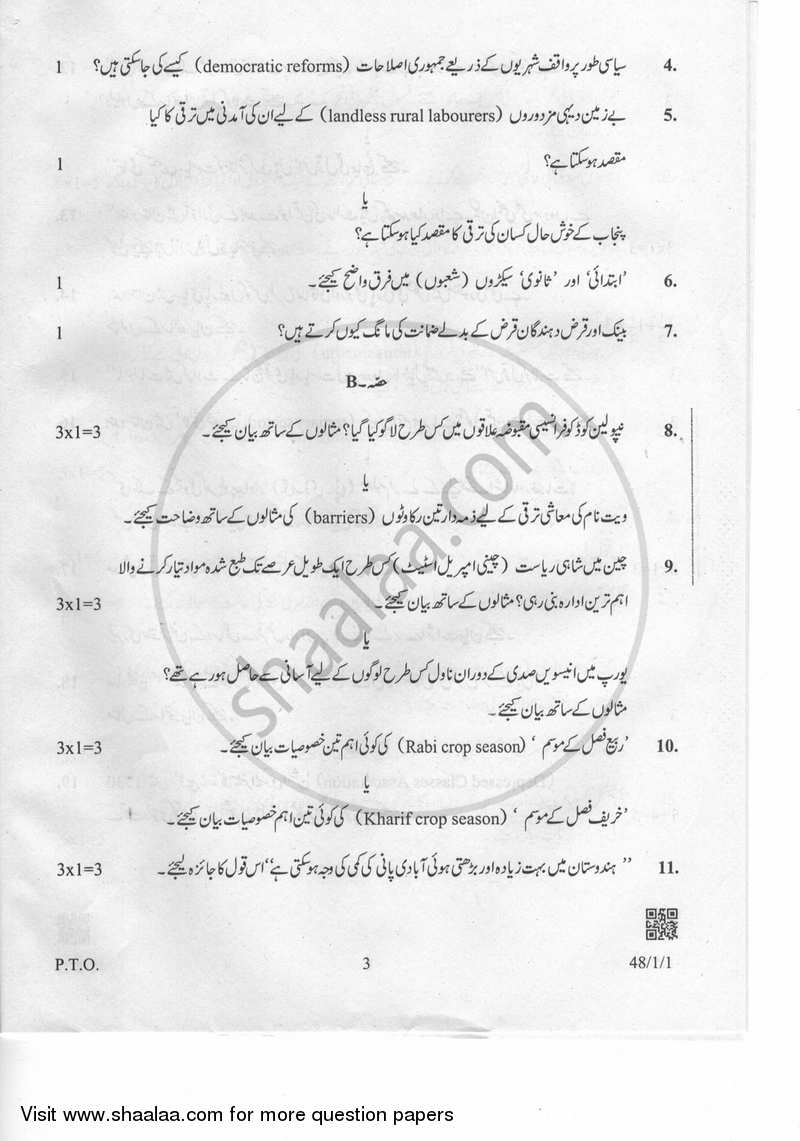 4. سیاسی طور پر واقف شہریوں کے ذریعے جمہوری اصلاحات (democratic reforms) کیسے کی جاسکتی ہیں؟ 1
5. بے زمین دیہی مزدوروں (landless rural labourers) کے لیے ان کی آمدنی میں ترقی کا کیا
مقصد ہوسکتا ہے؟ 1
یا
پنجاب کے خوش حال کسان کی ترقی کا مقصد کیا ہوسکتا ہے؟
6. 'ابتدائی' اور 'ثانوی' سیکڑوں (شعبوں) میں فرق واضح کیجئے۔ 1
7. بینک اور قرض دہندگان قرض کے بدلے ضمانت کی مانگ کیوں کرتے ہیں؟ 1
حصّہ-B
8. نپولین کوڈ کو فرانسیسی مقبوضہ علاقوں میں کس طرح لاگو کیا گیا؟ مثالوں کے ساتھ بیان کیجئے۔ 3x1=3
یا
ویت نام کی معاشی ترقی کے لیے ذمہ دار تین رکاوٹوں (barriers) کی مثالوں کے ساتھ وضاحت کیجئے۔
9. چین میں شاہی ریاست (چینی امپریل اسٹیٹ) کس طرح ایک طویل عرصے تک طبع شدہ مواد تیار کرنے والا
اہم ترین ادارہ بنی رہی؟ مثالوں کے ساتھ بیان کیجئے۔ 3x1=3
یا
یورپ میں انیسویں صدی کے دوران ناول کس طرح لوگوں کے لیے آسانی سے حاصل ہورہے تھے؟
مثالوں کے ساتھ بیان کیجئے۔
10. 'ربیع فصل کے موسم' (Rabi crop season) کی کوئی اہم تین خصوصیات بیان کیجئے۔ 3x1=3
یا
'خریف فصل کے موسم' (Kharif crop season) کی کوئی تین اہم خصوصیات بیان کیجئے۔
11. "ہندوستان میں بہت زیادہ اور بڑھتی ہوئی آبادی پانی کی کمی کی وجہ ہوسکتی ہے" اس قول کا جائزہ لیجئے۔ 3x1=3
shaalaa.com
P.T.O. 3 48/1/1
Visit www.shaalaa.com for more question papers